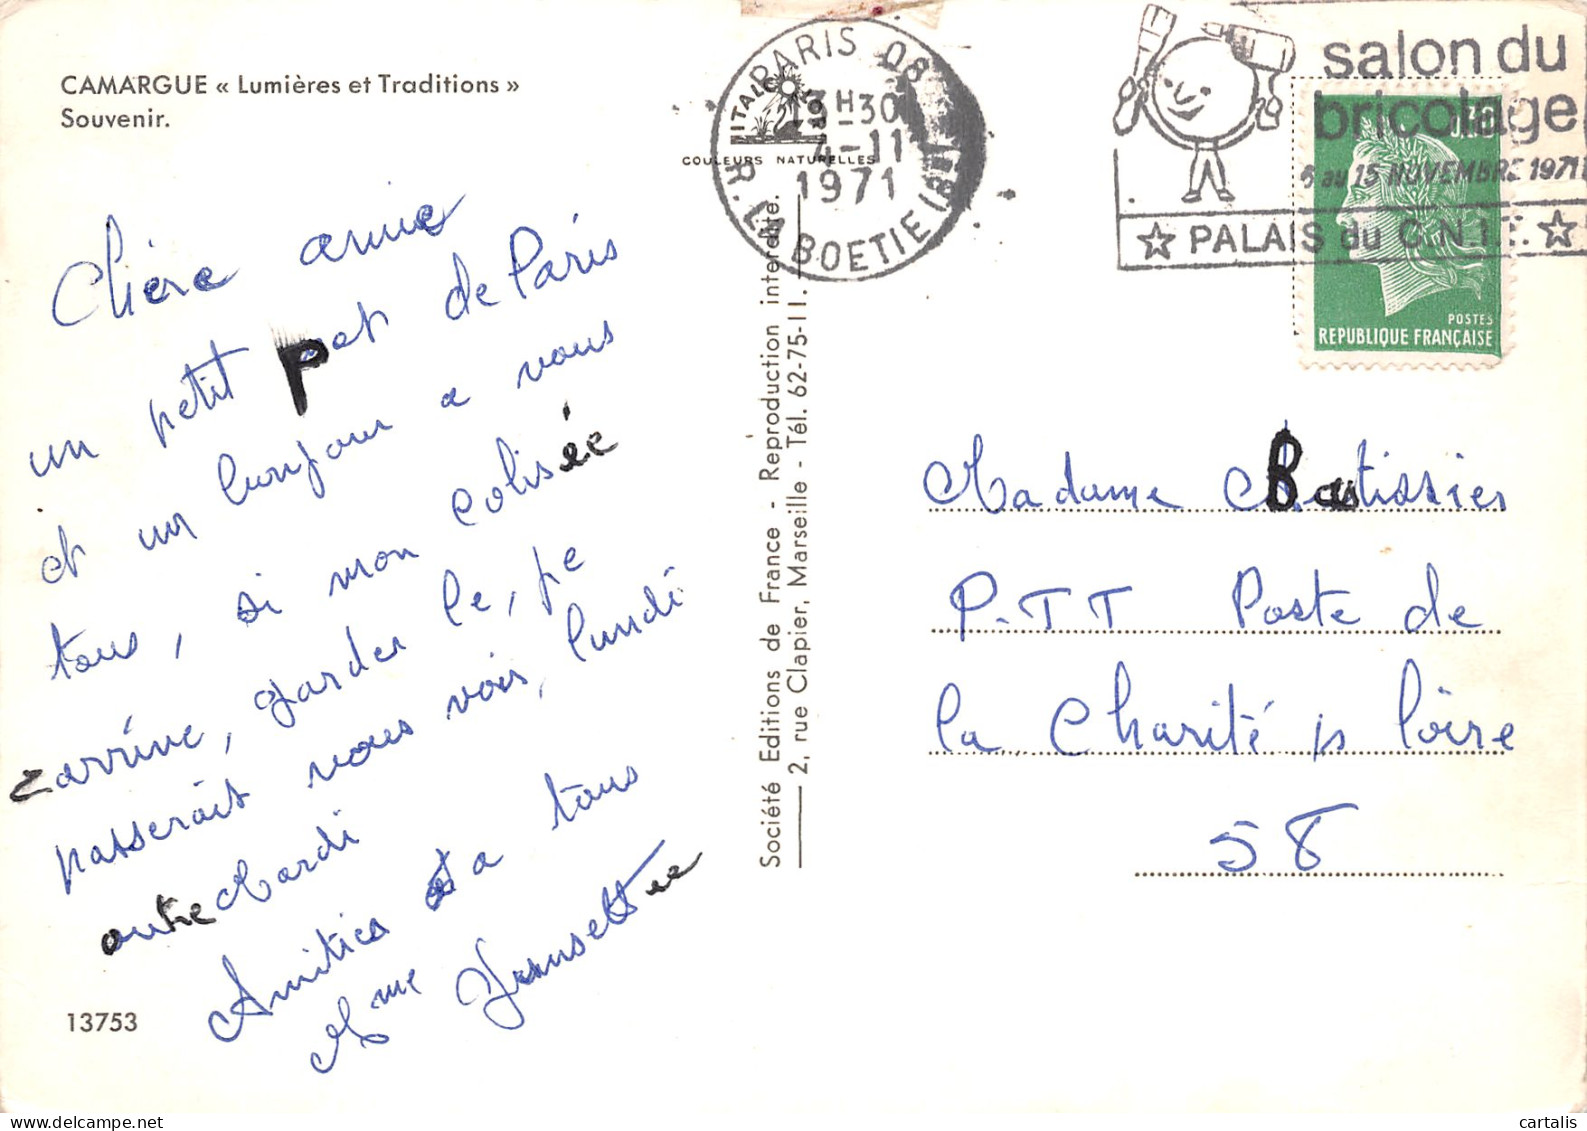 CAMARGUE « Lumières et Traditions »
Souvenir.
Chère amie
un petit pet de Paris
et un bonjour a vous
tous, si mon colisée
arrive, garder le, je
passerait vous voir, lundi
outre Mardi
Amitiés a tous
Mme
13753
Société Editions de France - Reproduction interdite.
2, rue Clapier, Marseille - Tél. 62-75-11.
ITALCOLOR
COULEURS NATURELLES
PARIS 08
13H30
4-11
1971
R. LA BOETIE (8E)
salon du
bricolage
6 au 15 NOVEMBRE 1971
☆ PALAIS du C.N.I.T. ☆
0.30
POSTES
REPUBLIQUE FRANÇAISE
Madame Bastissier
P.TT Poste de
la Charité s/ Loire
58